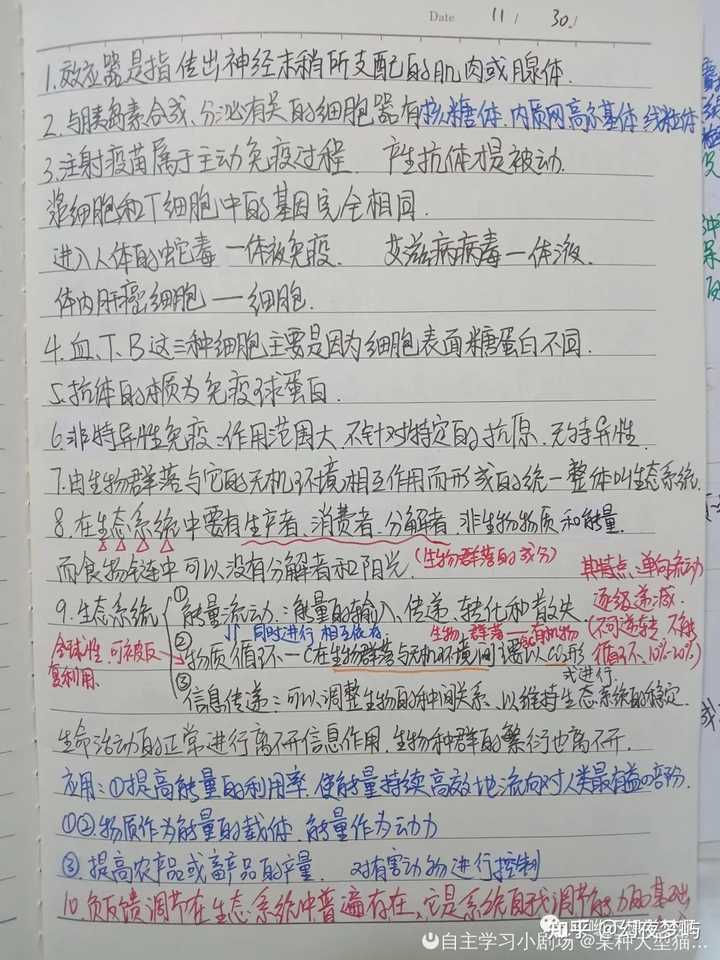 Date 11/ 30.
1.效应器是指传出神经末梢所支配的肌肉或腺体.
2.与胰岛素合成、分泌有关的细胞器有核糖体.内质网高尔基体.线粒体
3.注射疫苗属于主动免疫过程. 产生抗体才是被动.
浆细胞和T细胞中的基因完全相同.
进入人体的蛇毒—体液免疫. 艾滋病病毒—体液.
体内肝癌细胞——细胞.
4.血、T、B这三种细胞主要是因为细胞表面糖蛋白不同.
5.抗体的本质为免疫球蛋白.
6.非特异性免疫:作用范围大.不针对特定的抗原.无特异性.
7.由生物群落与它的无机环境相互作用而形成的统一整体叫生态系统.
8.在生态系统中要有生产者.消费者.分解者.非生物物质和能量.
而食物链中可以没有分解者和阳光.(生物群落的成分)
其特点、单向流动
逐级递减
(不可逆转 不能
循环、10%-20%)
9.生态系统
①能量流动:能量的输入、传递、转化和散失.
同时进行 相互依存 生物群落——有机物
全球性.可被反
复利用.
②物质循环—C在生物群落与无机环境间主要以CO2形
式进行
③信息传递:可以调整生物的种间关系、以维持生态系统的稳定.
生命活动的正常进行离不开信息作用.生物种群的繁衍也离不开.
应用:①提高能量的利用率.使能量持续高效地流向对人类最有益的部分.
①②.物质作为能量的载体.能量作为动力
③.提高农产品或畜产品的产量. 对有害动物进行控制
10.负反馈调节在生态系统中普遍存在、它是系统自我调节能力的基础
知乎 @幻夜梦屿
自主学习小剧场 @某种大型猫...